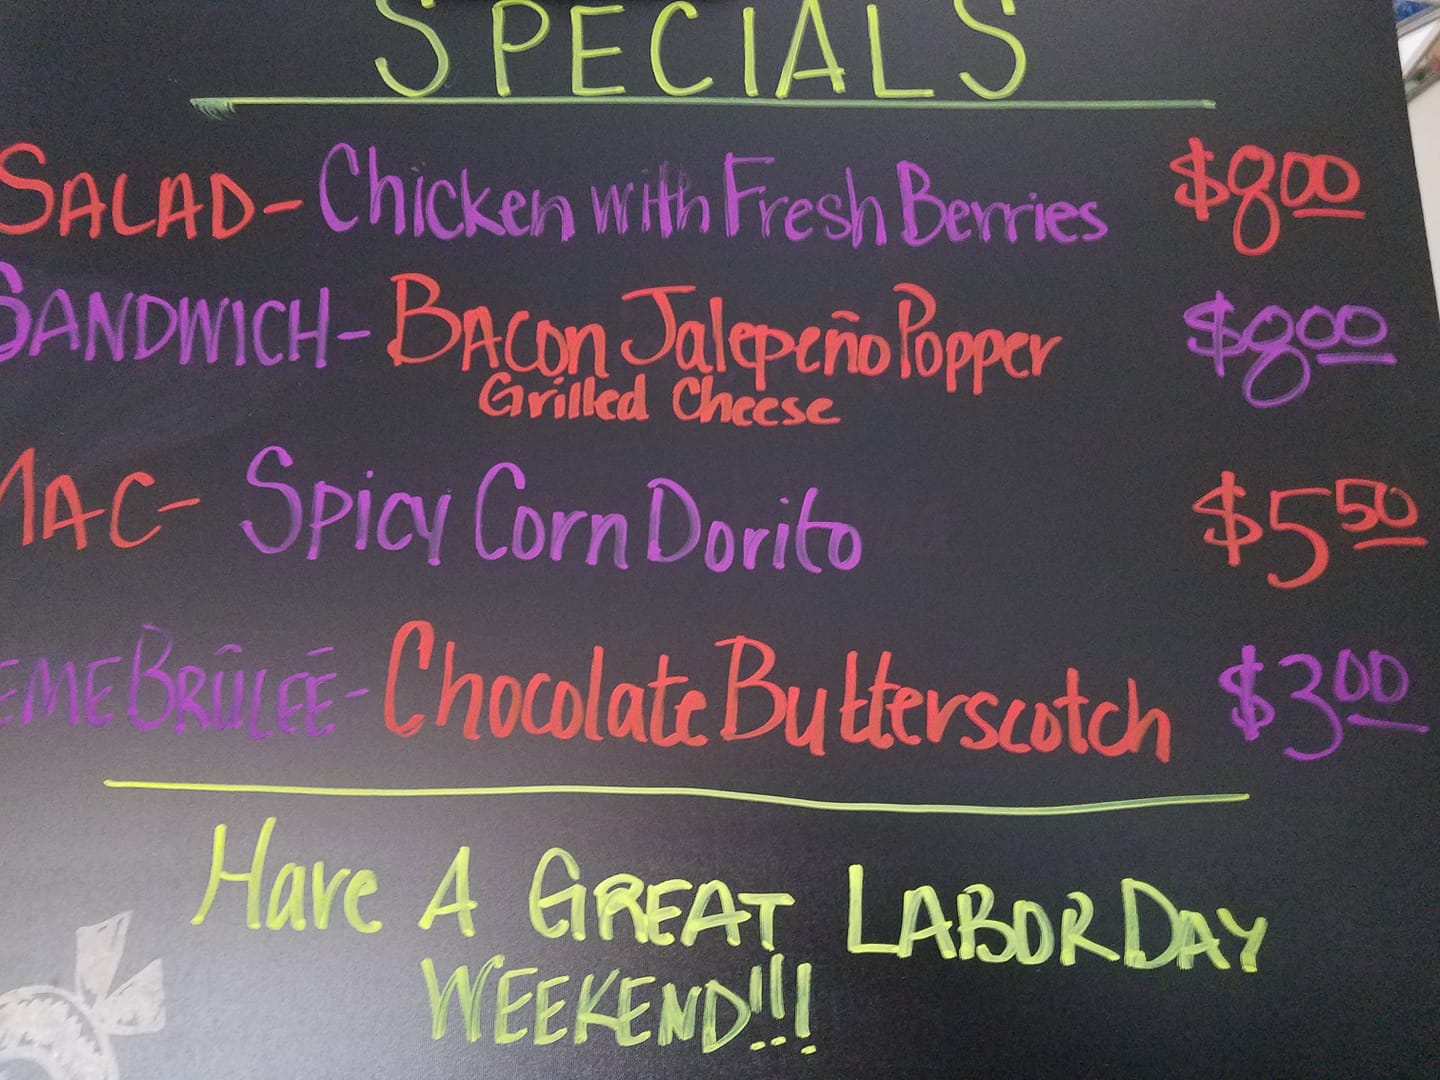 SPECIALS
SALAD- Chicken with Fresh Berries $8.00
SANDWICH- BACon Jalepeño Popper $8.00
Grilled Cheese
MAC- Spicy Corn Dorito $5.50
EME BRÛLEÉ- Chocolate Butterscotch $3.00
Have A GREAT LABOR DAY
WEEKEND!!!